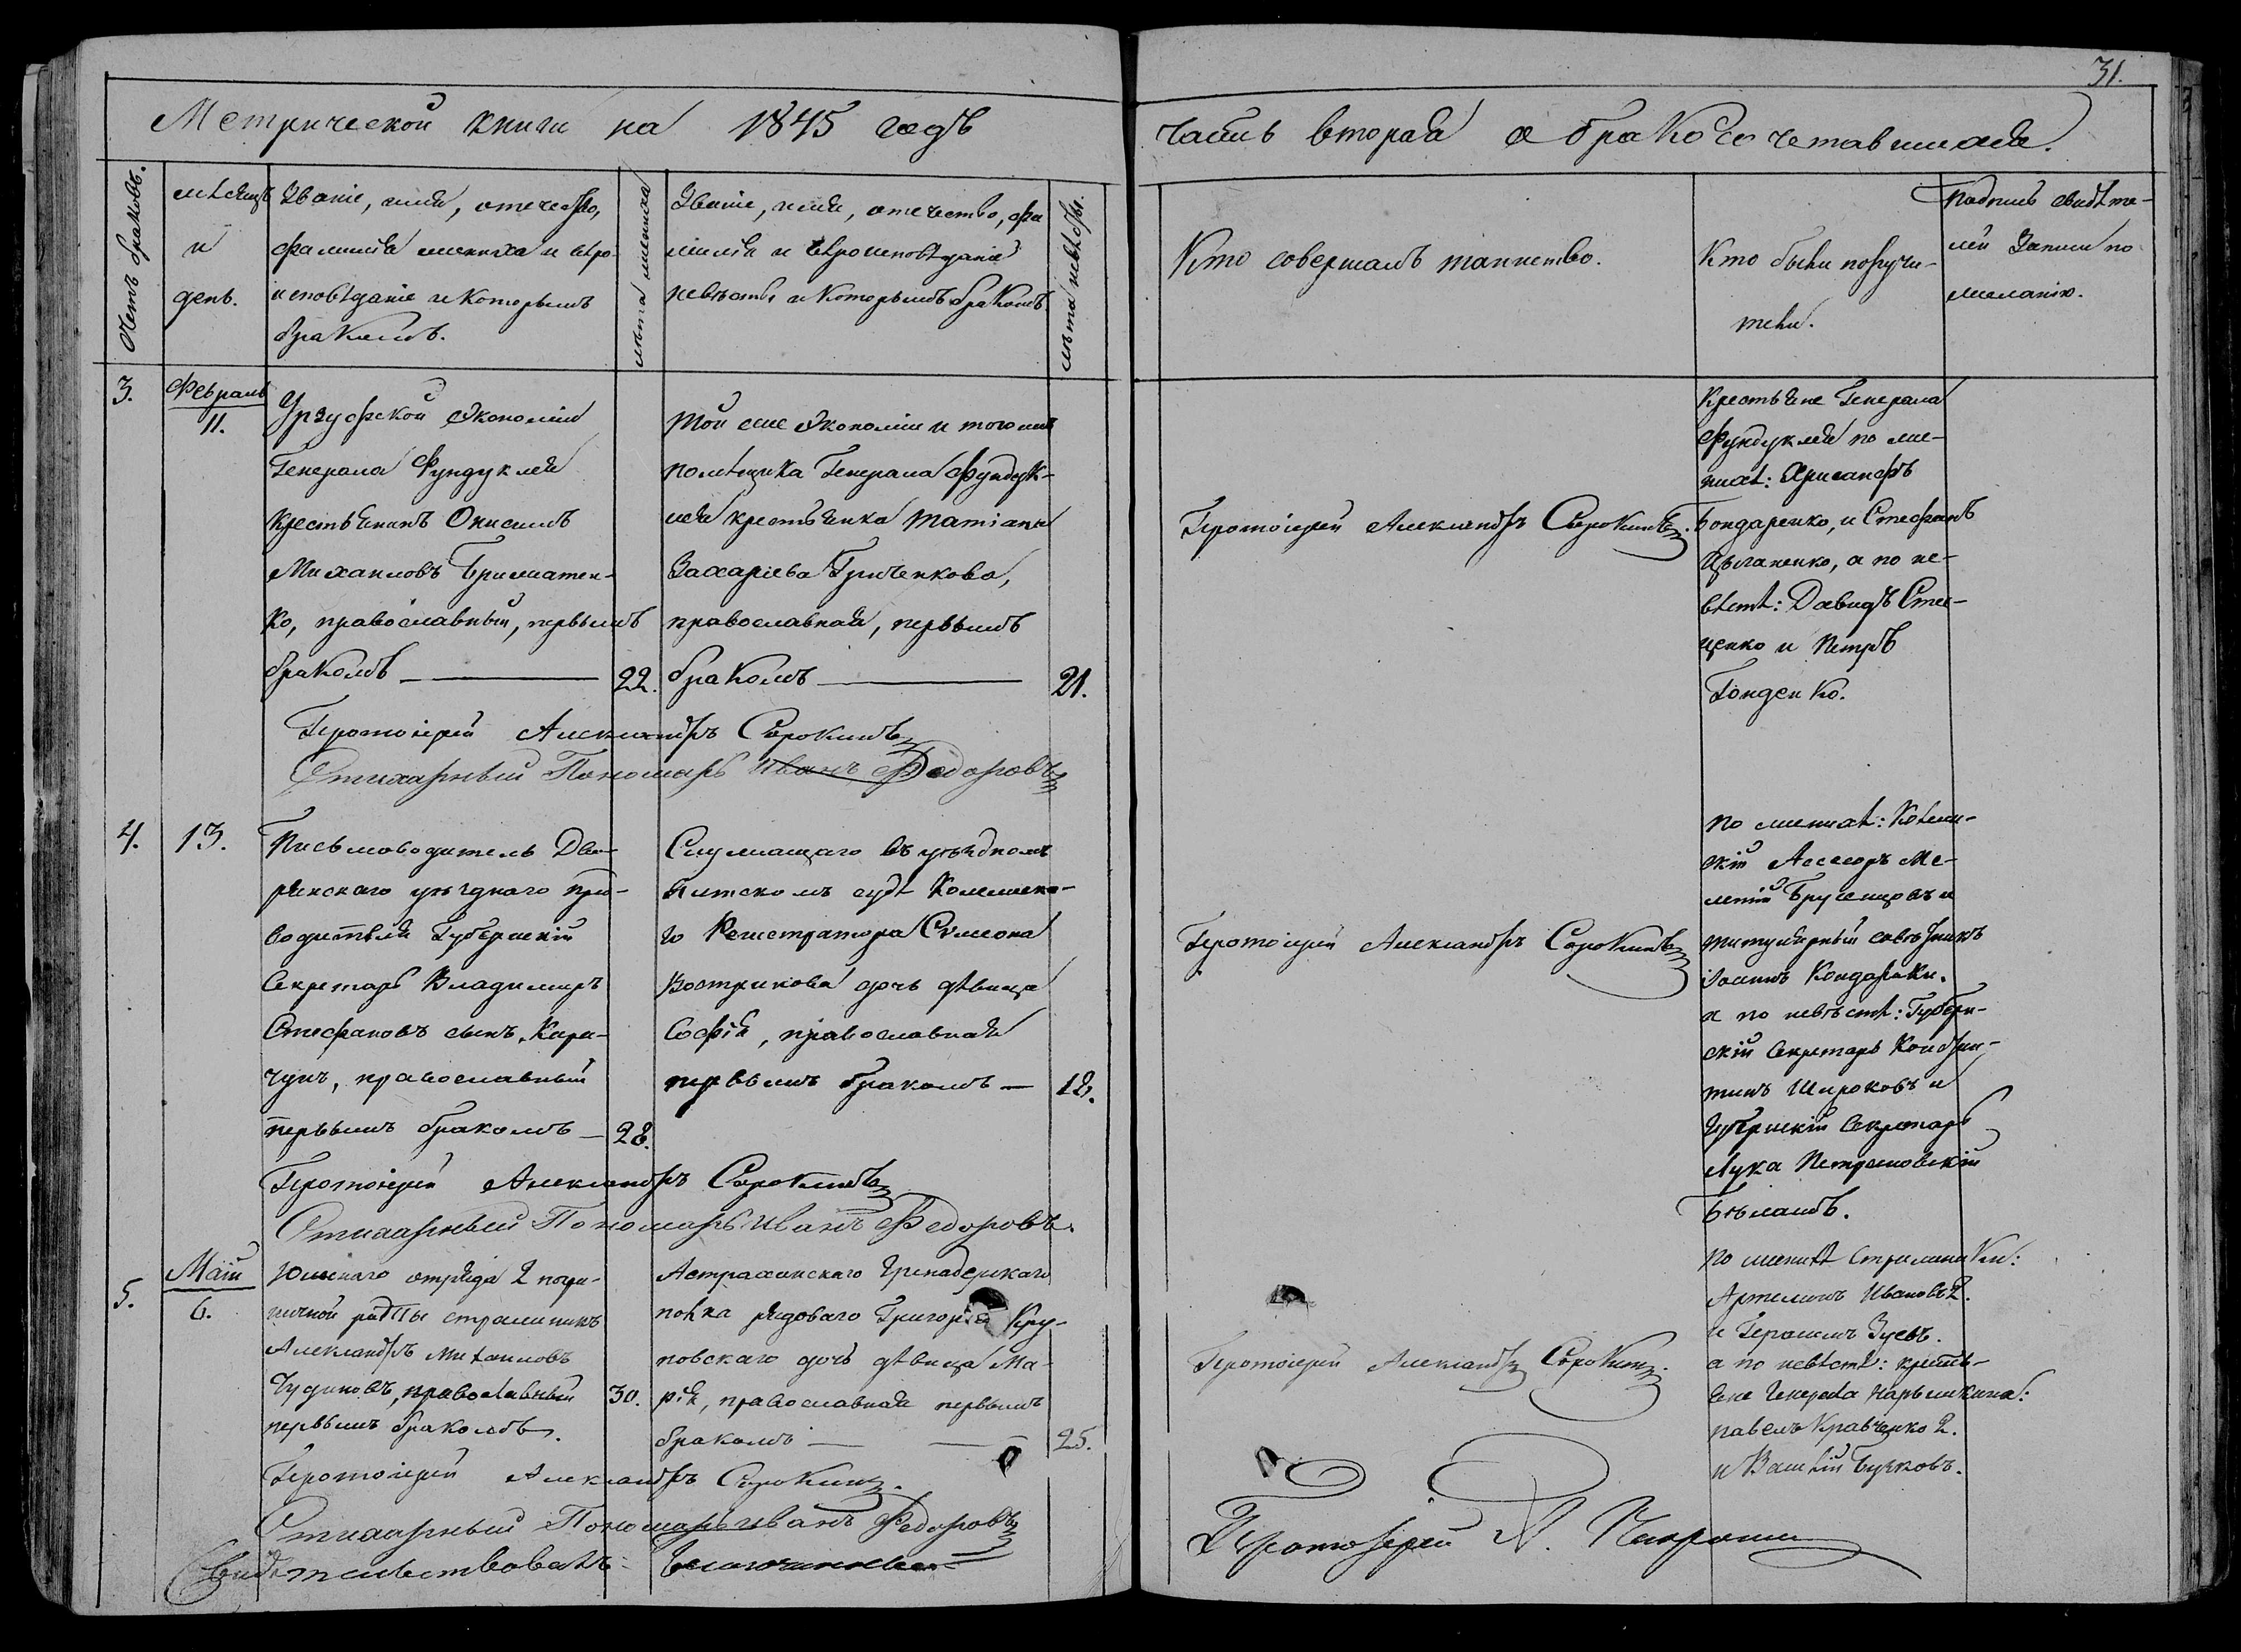 31.
Метрической книги на 1845 годъ
часть вторая о бракосочетавшихся.
Счетъ браковъ.
мѣсяцъ
и
день.
Званіе, имя, отечество,
фамилія жениха и вѣро-
исповѣданіе и которымъ
бракомъ.
лѣта жениха
Званіе, имя, отечество, фа
милія и вѣроисповѣданіе
невѣсты и которымъ бракомъ
лѣта невѣсты.
Кто совершалъ таинство.
Кто были поручи-
тели.
Подпись свидѣте-
лей записи по
желанію.
3.
Февраль
11.
Урзуфской Экономіи
Генерала Фундуклея
крестьянинъ Онисимъ
Михаиловъ
ко, православный, первымъ
бракомъ
22.
той же Экономіи и того жъ
помѣщика Генерала Фундук-
лея крестьянка Татіана
Захаріева Гриченкова,
православная, первымъ
бракомъ
21.
Протоіерей Александръ Сорокинъ.
Крестьяне Генерала
Фундуклея по же-
нихѣ: Хрисанфъ
Бондаренко, и Стефанъ
Цыганенко, а по не-
вѣстѣ: Давидъ Стец-
ценко и Петръ
Гонденко.
Протоіерей Александръ Сорокинъ
Стихарный Пономарь Иванъ Федоровъ
4.
13.
Письмоводитель Дво-
рянскаго уѣзднаго пред-
водителя Губернскій
Секретарь Владимиръ
Стефановъ сынъ Кара-
чунъ, православный
первымъ бракомъ
28.
Служащаго въ уѣздномъ
Ялтскомъ судѣ Коллежска-
го Регистратора Сѵмеона
Вострикова дочь дѣвица
Софія, православная
первымъ бракомъ
18.
Протоіерей Александръ Сорокинъ
по женихѣ: Колеж-
скій Ассесоръ Ме-
летій и
титулярный совѣтникъ
Іоаннъ Кондараки.
а по невѣстѣ: Губерн-
скій Секретарь Констан-
тинъ Широковъ и
Губернскій Секретарь
Лука Петрановскій
Протоіерей Александръ Сорокинъ
Стихарный Пономарь Иванъ Федоровъ.
5.
Май
6.
Южнаго отряда 2 погра-
ничной роты стражникъ
Александръ Михаиловъ
Чудиновъ, православный
первымъ бракомъ.
30.
Астраханскаго Гренадерскаго
полка рядоваго Григорія Кру-
повскаго дочь дѣвица Ма-
рія, православная первымъ
бракомъ
25.
Протоіерей Александръ Сорокинъ.
по женихѣ стражники:
Артемонъ Ивановъ 2.
и Герасимъ Зуевъ.
а по невѣстѣ: кресть-
яне Генерала Нарышкина:
павелъ Кравченко 2.
и Василій Бучковъ.
Протоіерей Александръ Сорокинъ.
Стихарный Пономарь Иванъ Федоровъ
Свидѣтельствовалъ: Благочинный
Протоіерей